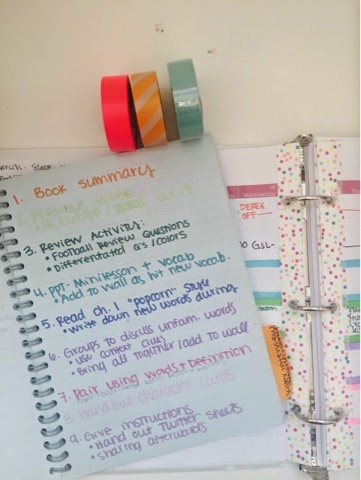 1. Book summary
2. Previous week
3. Review Activity:
• Football Review Questions
• Differentiated Q's/colors
4. PPT: Minilesson + vocab
• Add to wall as hit new vocab.
5. Read ch. 1 "popcorn" style
• Write down new words during
6. Groups to discuss unfam. words
• use context clues
• Bring all together/add to wall
7. Pair using words + definition
8. Hand out character cards
9. Give instructions
• Hand out Twitter sheets
• sharing afterwards
DEREK
OFF